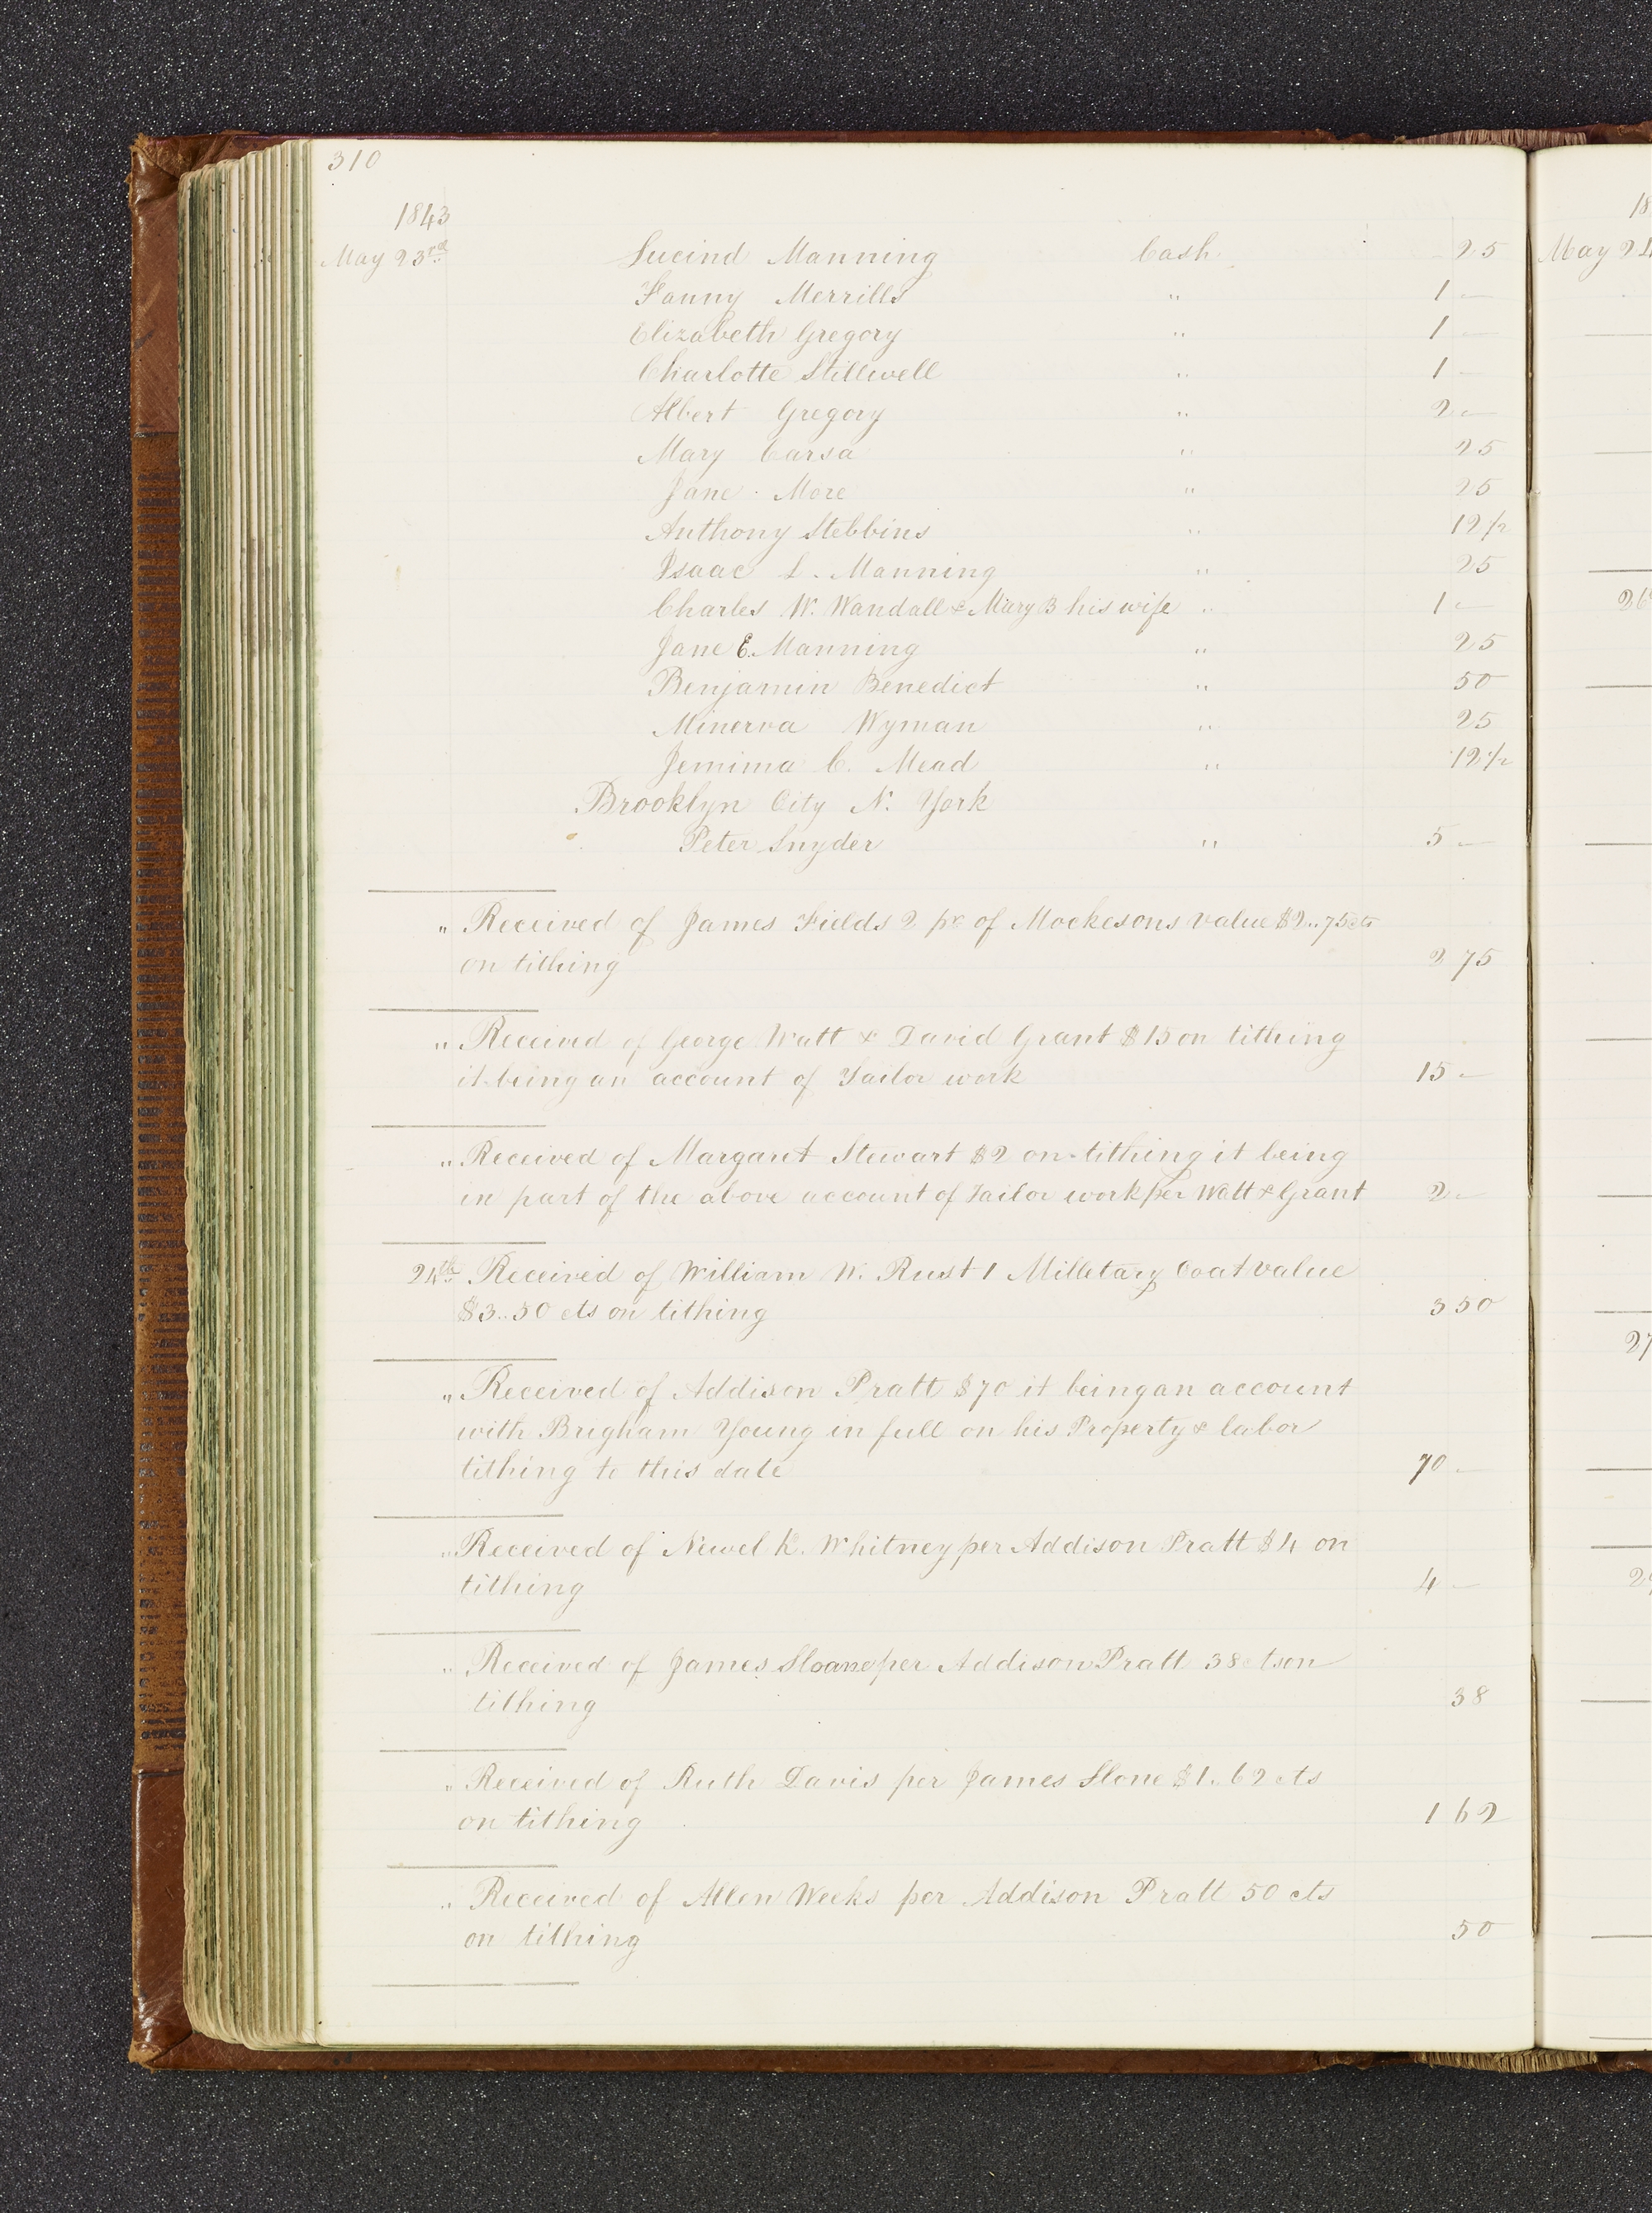 310
1843
May 23rd Lucind Manning Cash. 25
Fanny Merrills " 1 —
Elizabeth Gregory " 1 —
Charlotte Stillwell " 1 —
Albert Gregory " 2 —
Mary Carsa " 25
Jane More " 25
Anthony Stebbins " 12 1/2
Isaac L. Manning " 25
Charles W. Wandall & Mary B his wife " 1 —
Jane E. Manning " 25
Benjamin Benedict " 50
Minerva Wyman " 25
Jemima C. Mead " 12 1/2
Brooklyn City N. York
Peter Snyder " 5 —
" Received of James Fields 2 pr of Mockesons value $2..75cts
on tithing 2 75
" Received of George Watt & David Grant $15 on tithing
it being an account of Tailor work 15 —
" Received of Margaret Stewart $2 on tithing it being
in part of the above account of Tailor work per Watt & Grant 2 —
24th Received of William W. Rust 1 Milletary Coat value
$3..50 cts on tithing 3 50
" Received of Addison Pratt $70 it being an account
with Brigham Young in full on his Property & labor
tithing to this date 70 —
" Received of Newel K. Whitney per Addison Pratt $4 on
tithing 4 —
" Received of James Sloane per Addison Pratt 38 cts on
tithing 38
" Received of Ruth Davis per James Slone $1..62 cts
on tithing 1 62
" Received of Allen Weeks per Addison Pratt 50 cts
on tithing 50
18
May 24
26
27